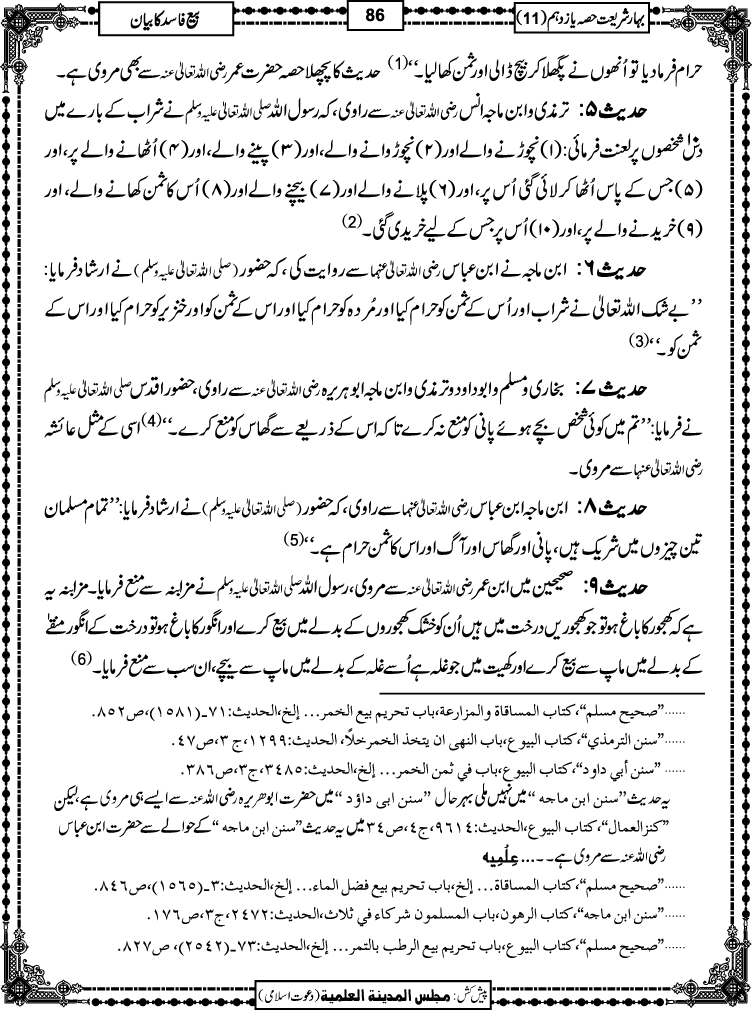 بہار شریعت حصہ یاز دہم (11)
86
بیع فاسد کا بیان
حرام فرما دیا تو اُنھوں نے پگھلا کر بیچ ڈالی اور ثمن کھالیا۔‘‘(1) حدیث کا پچھلا حصہ حضرت عمر رضی اللہ تعالیٰ عنہ سے بھی مروی ہے۔
حدیث ۵: ترمذی و ابن ماجہ انس رضی اللہ تعالیٰ عنہ سے راوی، کہ رسول اللہ صلی اللہ تعالیٰ علیہ وسلم نے شراب کے بارے میں
دس شخصوں پر لعنت فرمائی: (۱) نچوڑنے والے اور (۲) نچوڑوانے والے، اور (۳) پینے والے، اور (۴) اُٹھانے والے پر، اور
(۵) جس کے پاس اُٹھا کر لائی گئی اُس پر، اور (۶) پلانے والے اور (۷) بیچنے والے اور (۸) اُس کا ثمن کھانے والے، اور
(۹) خریدنے والے پر، اور (۱۰) اُس پر جس کے لیے خریدی گئی۔(2)
حدیث ۶: ابن ماجہ نے ابن عباس رضی اللہ تعالیٰ عنہما سے روایت کی، کہ حضور (صلی اللہ تعالیٰ علیہ وسلم) نے ارشاد فرمایا:
’’بے شک اللہ تعالیٰ نے شراب اور اُس کے ثمن کو حرام کیا اور مُردہ کو حرام کیا اور اس کے ثمن کو اور خنزیر کو حرام کیا اور اس کے
ثمن کو۔‘‘(3)
حدیث ۷: بخاری و مسلم و ابوداود و ترمذی و ابن ماجہ ابوہریرہ رضی اللہ تعالیٰ عنہ سے راوی، حضور اقدس صلی اللہ تعالیٰ علیہ وسلم
نے فرمایا: ’’تم میں کوئی شخص بچے ہوئے پانی کو منع نہ کرے تاکہ اس کے ذریعے سے گھاس کو منع کرے۔‘‘(4) اسی کے مثل عائشہ
رضی اللہ تعالیٰ عنہا سے مروی۔
حدیث ۸: ابن ماجہ ابن عباس رضی اللہ تعالیٰ عنہما سے راوی، کہ حضور (صلی اللہ تعالیٰ علیہ وسلم) نے ارشاد فرمایا: ’’تمام مسلمان
تین چیزوں میں شریک ہیں، پانی اور گھاس اور آگ اور اس کا ثمن حرام ہے۔‘‘(5)
حدیث ۹: صحیحین میں ابن عمر رضی اللہ تعالیٰ عنہ سے مروی، رسول اللہ صلی اللہ تعالیٰ علیہ وسلم نے مزابنہ سے منع فرمایا۔ مزابنہ یہ
ہے کہ کھجور کا باغ ہو تو جو کھجوریں درخت میں ہیں اُن کو خشک کھجوروں کے بدلے میں بیع کرے اور انگور کا باغ ہو تو درخت کے انگور منقے
کے بدلے میں ماپ سے بیع کرے اور کھیت میں جو غلہ ہے اُسے غلہ کے بدلے میں ماپ سے بیچے، ان سب سے منع فرمایا۔(6)
......”صحیح مسلم“، کتاب المساقاة والمزارعة، باب تحریم بیع الخمر... إلخ، الحدیث: ٧١-(١٥٨١)، ص٨٥٢.
......”سنن الترمذي“، کتاب البیوع، باب النهی ان یتخذ الخمر خلًا، الحدیث: ١٢٩٩، ج٣، ص٤٧.
...... ”سنن أبي داود“، کتاب البیوع، باب في ثمن الخمر... إلخ، الحدیث: ٣٤٨٥، ج٣، ص٣٨٦.
یہ حدیث ”سنن ابن ماجه“ میں نہیں ملی بہر حال ”سنن ابی داؤد“ میں حضرت ابوھریرہ رضی اللہ عنہ سے ایسے ہی مروی ہے، لیکن
”کنزالعمال“، کتاب البیوع، الحدیث: ٩٦١٤، ج٤، ص٣٤ میں یہ حدیث ”سنن ابن ماجه“ کے حوالے سے حضرت ابن عباس
رضی اللہ عنہ سے مروی ہے۔۔... عِلْمِیه
......”صحیح مسلم“، کتاب المساقاة... إلخ، باب تحریم بیع فضل الماء... إلخ، الحدیث: ٣-(١٥٦٥)، ص٨٤٦.
......”سنن ابن ماجه“، کتاب الرهون، باب المسلمون شرکاء في ثلاث، الحدیث: ٢٤٧٢، ج٣، ص١٧٦.
...... ”صحیح مسلم“، کتاب البیوع، باب تحریم بیع الرطب بالتمر... إلخ، الحدیث: ٧٣-(٢٥٤٢)، ص٨٢٧.
پیش کش: مجلس المدينة العلمية (دعوت اسلامی)